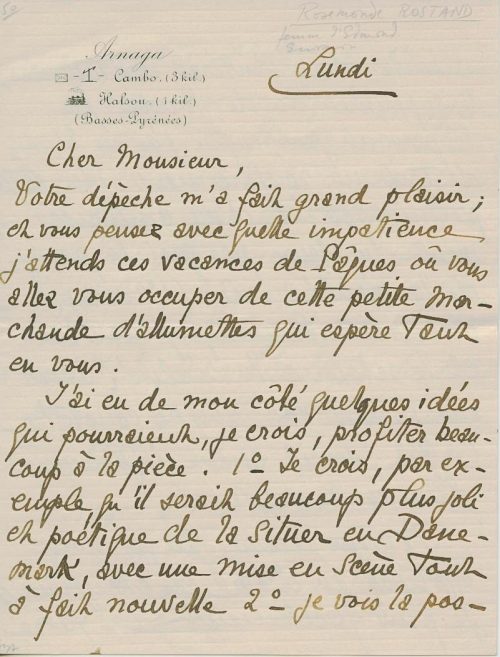 Rosemonde ROSTAND
femme d'Edmond
Arnaga
-T- Cambo. (3 kil.)
Halsou. (1 kil.)
(Basses-Pyrénées)
Lundi
Cher Monsieur,
Votre dépèche m'a fait grand plaisir ;
et vous pensez avec quelle impatience
j'attends ces vacances de Pâques où vous
allez vous occuper de cette petite mar-
chande d'allumettes qui espère Tant
en vous.
J'ai eu de mon côté quelques idées
qui pourraient, je crois, profiter beau-
coup à la pièce. 1º Je crois, par ex-
emple qu'il serait beaucoup plus joli
et poétique de la situer en Dane-
mark, avec une mise en Scène Tout
à fait nouvelle 2º je vois la pos-